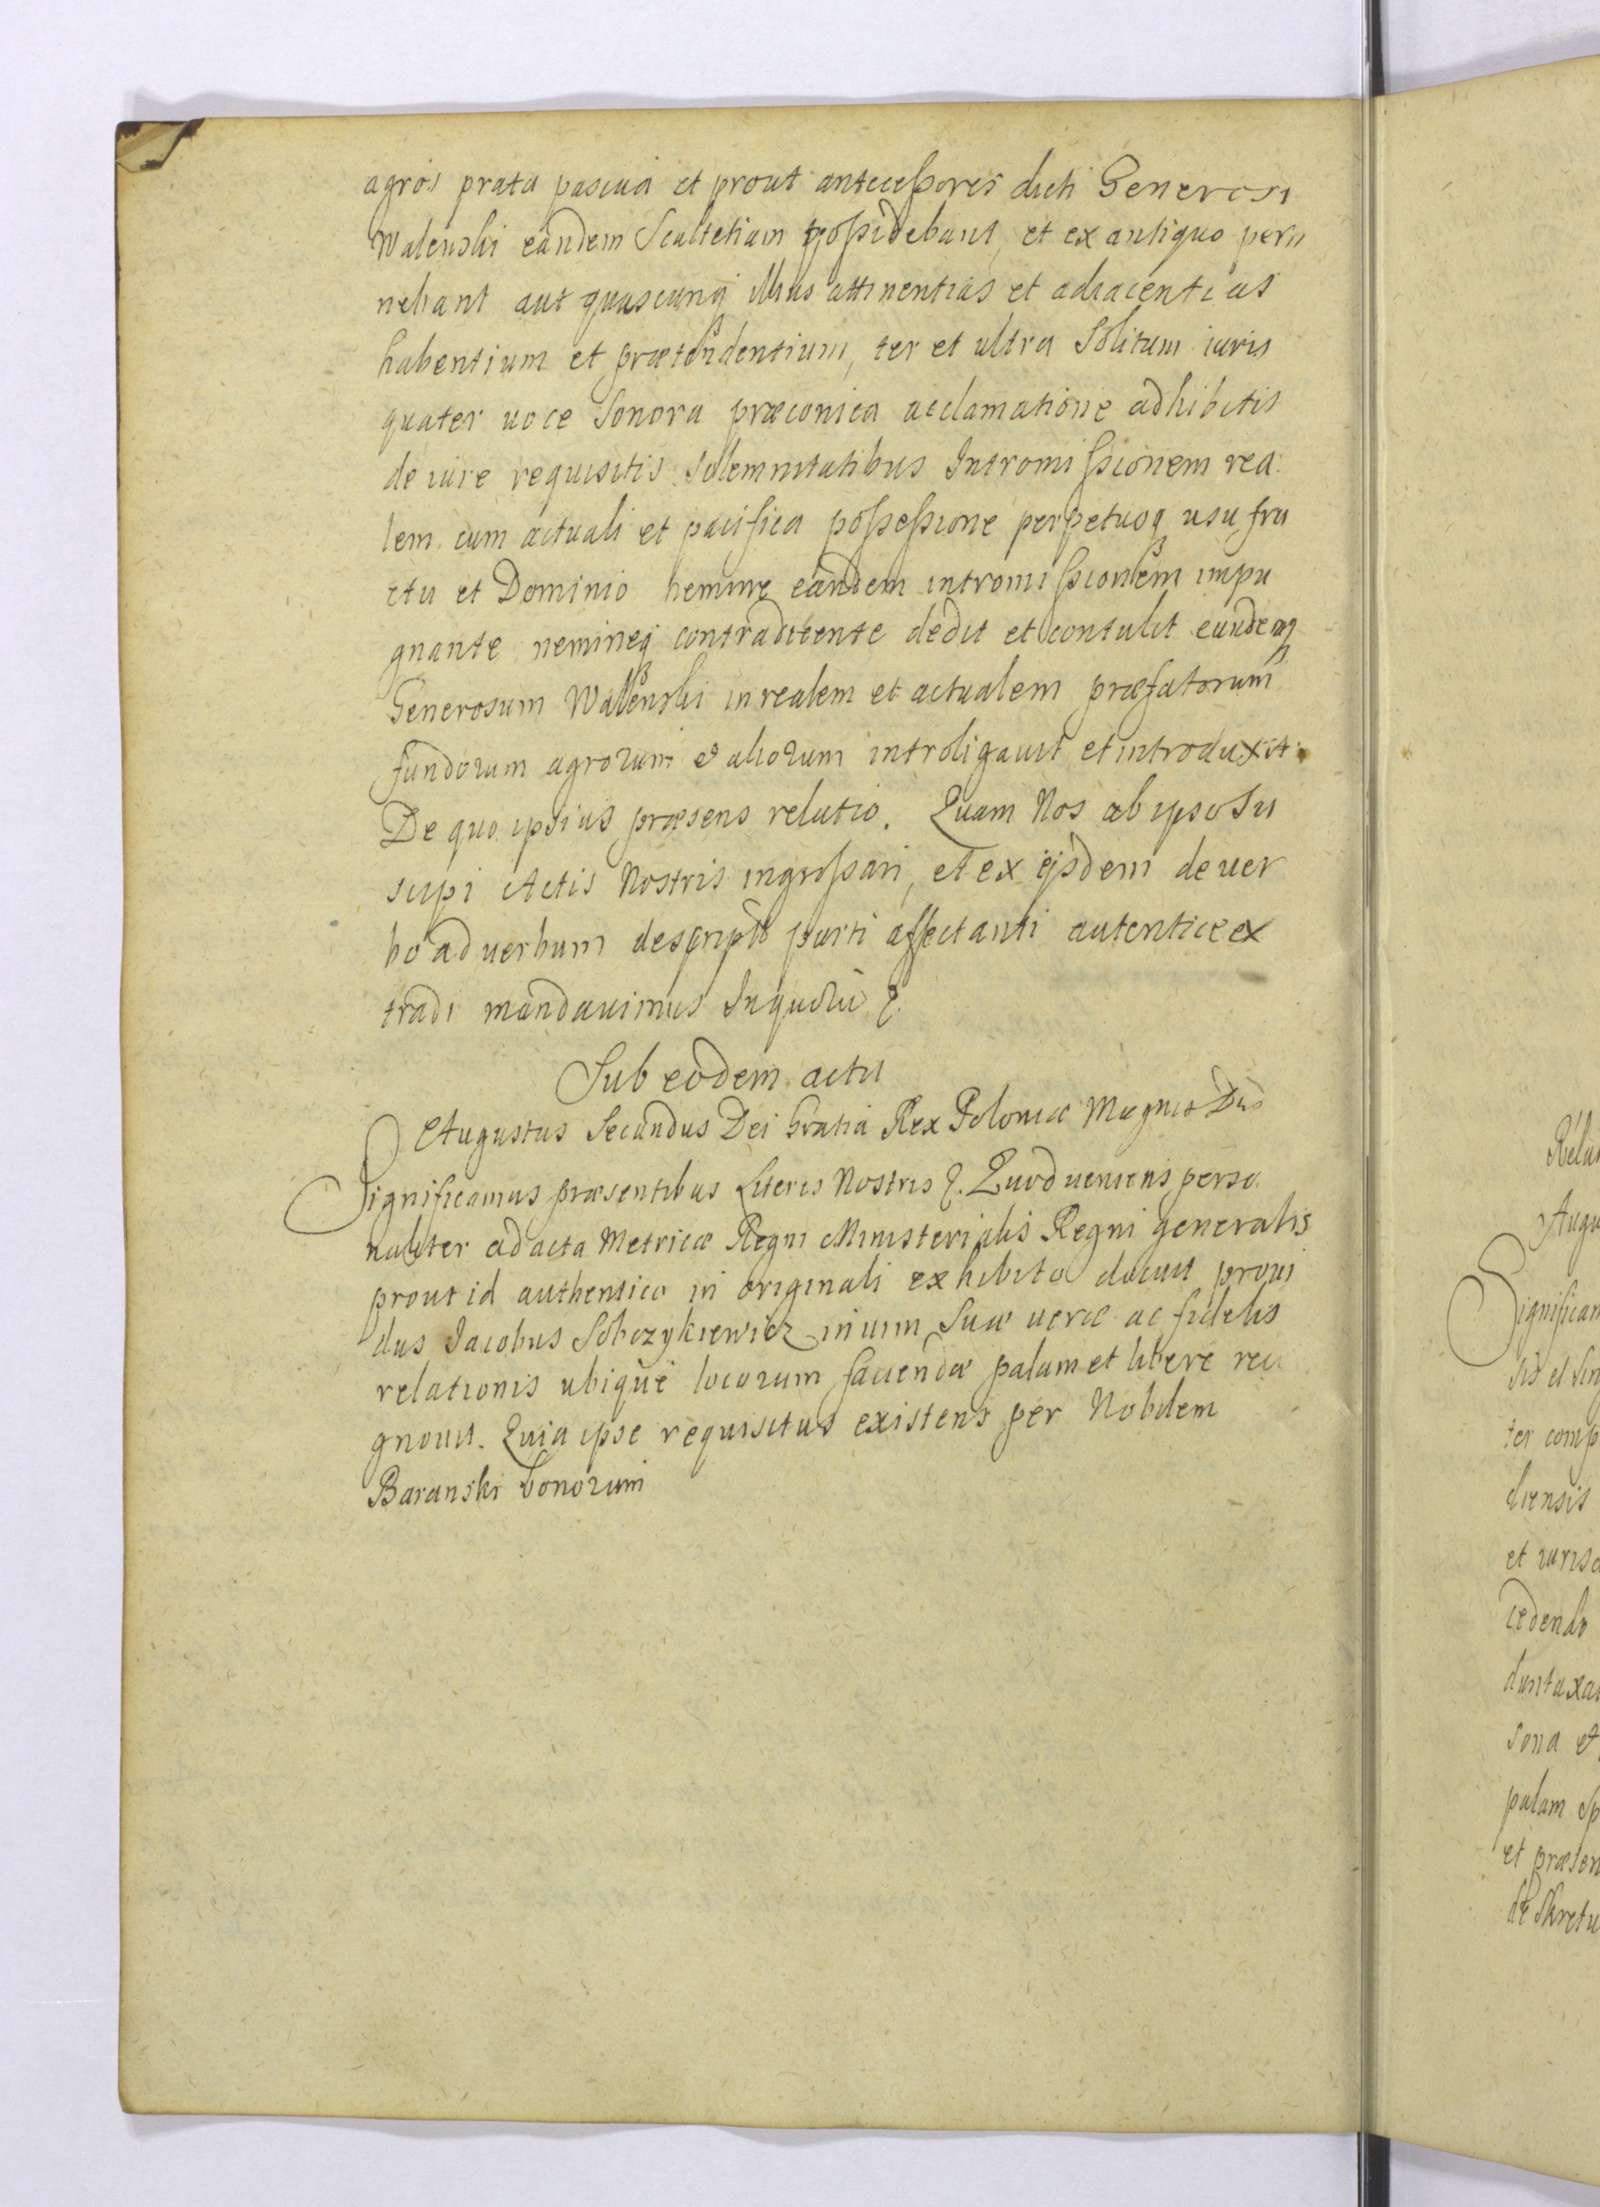 agros prata pascua et prout antecessores dicti Generosi
Walenski eandem Scultetiam possidebant, et ex antiquo perti
nebant aut quascunq illius attinentias et adiacentias
habentium et prætendentium, ter et ultra Solitum iuris
quater uoce Sonora præconica acclamatione adhibitis
de iure requisitis Solemnitatibus Intromissionem rea
lem cum actuali et pacifica possessione perpetuoq usu fru
ctu et Dominio nemine eandem intromissionem impu
gnante nemineq contradicente dedit et contulit eundemq
Generosum Walenski in realem et actualem præfatorum
fundorum agrorum et aliorum introligauit et introduxit.
De quo ipsius præsens relatio. Quam Nos ab ipso Su
scipi Actis Nostris ingrossari, et ex ijsdem de uer
bo ad uerbum descripto parti affectanti autentice ex
tradi mandauimus In quorū &.
Sub eodem actu
Augustus Secundus Dei Gratia Rex Poloniæ Magnus Dūs
Significamus præsentibus Literis Nostris &. Quod ueniens perso
naliter ad acta Metricæ Regni Ministerialis Regni generalis
prout id authentico in originali exhibito docuit proui
dus Iacobus Sobczykiewicz in uim Suæ ueræ ac fidelis
relationis ubique locorum faciendæ palam et libere reco
gnouit. Quia ipse requisitus existens per Nobilem
Baranski bonorum
Augu
Significam
ter comp
diensis
cedendo
duntaxat
sona et
palam Sp
et præsen
de Skretu